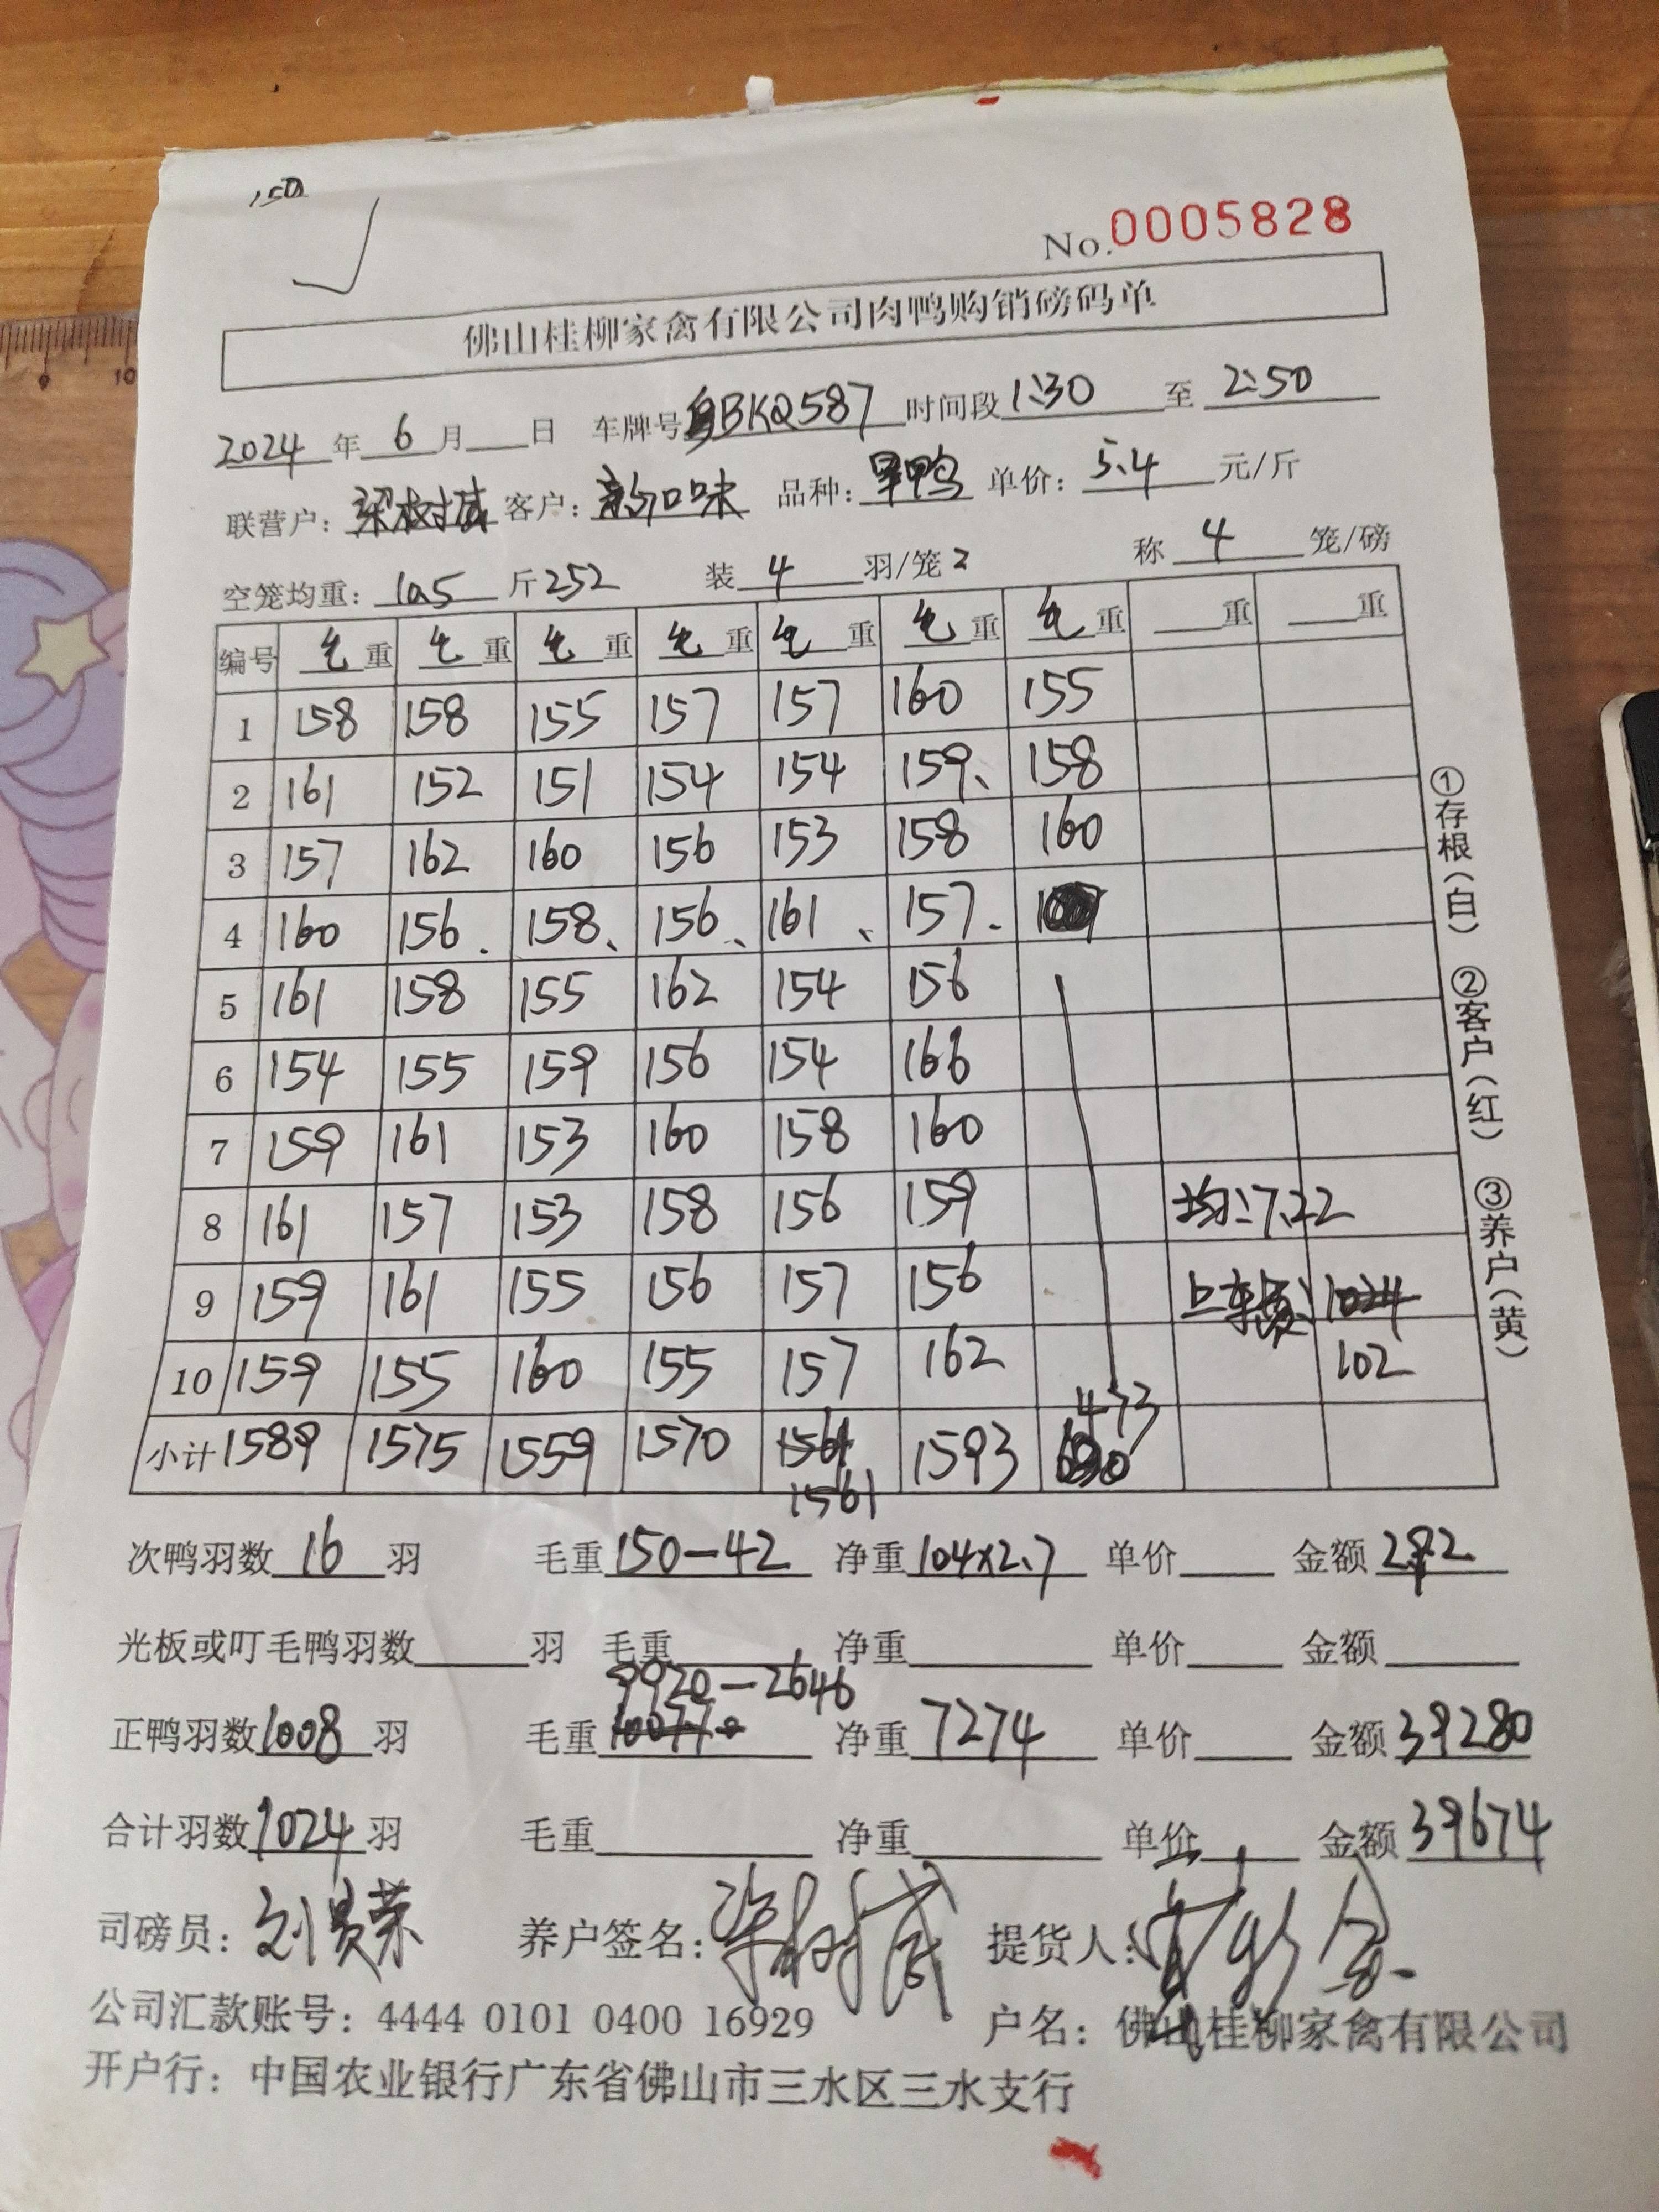 150
No.0005828
佛山桂柳家禽有限公司肉鸭购销磅码单
2024年6月 日 车牌号粤BKQ587 时间段1:30至2:50
联营户:梁树 客户:新口味 品种:旱鸭 单价:5.4元/斤
空笼均重:10.5斤252 装4羽/笼2 称4笼/磅
编号 毛重 毛重 毛重 毛重 毛重 毛重 毛重 重 重
1 158 158 155 157 157 160 155
2 161 152 151 154 154 159、 158
3 157 162 160 156 153 158 160
4 160 156. 158、 156、 161、 157.
5 161 158 155 162 154 156
6 154 155 159 156 154 166
7 159 161 153 160 158 160
8 161 157 153 158 156 159 均:7.22
9 159 161 155 156 157 156 上车费: 1024
10 159 155 160 155 157 162 102
473
小计 1589 1575 1559 1570 1561 1593
1561
次鸭羽数16羽 毛重150-42 净重104x2.7 单价 金额292
光板或叮毛鸭羽数 羽 毛重 净重 单价 金额
9920-2646
正鸭羽数1008羽 毛重 净重7274 单价 金额39280
合计羽数1024羽 毛重 净重 单价 金额39674
司磅员:刘贵荣 养户签名: 提货人:
公司汇款账号:4444 0101 0400 16929 户名:佛山桂柳家禽有限公司
开户行:中国农业银行广东省佛山市三水区三水支行
①存根(白) ②客户(红) ③养户(黄)